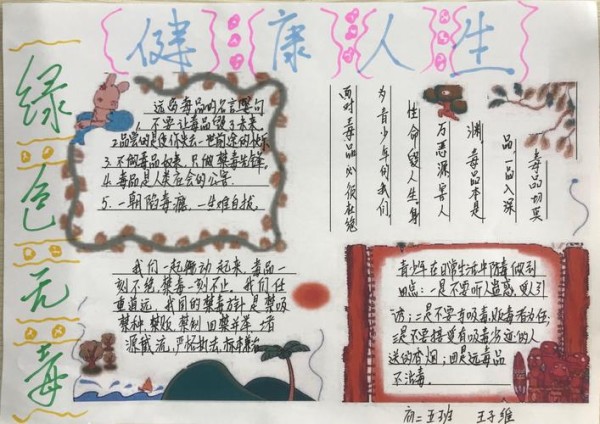 健康人生
绿色无毒
远离毒品的名言警句
1、不要让毒品毁了未来
3、不做毒品奴隶,只做禁毒先锋
4、毒品是人类社会的公害
5、一朝陷毒瘾,一生难自拔
毒品切莫
品,一品入深
渊,毒品本是
万恶源害人
性命毁人生身
为青少年的我们
面对毒品必很杜绝
我们一起行动起来,毒品一
刻不绝,禁毒一刻不止,我们任
重道远,我国的禁毒方针是禁吸
禁种,禁贩,禁制四禁并举,堵
源截流,严格执法,标本兼治
青少年在日常生活中防毒做到
四点:一是不要听人蛊惑,受人引
诱;二是不要有吸毒,贩毒
三是不要接受有吸毒劣迹的人
送的香烟;四是远毒品
不沾毒
初二五班 王子维